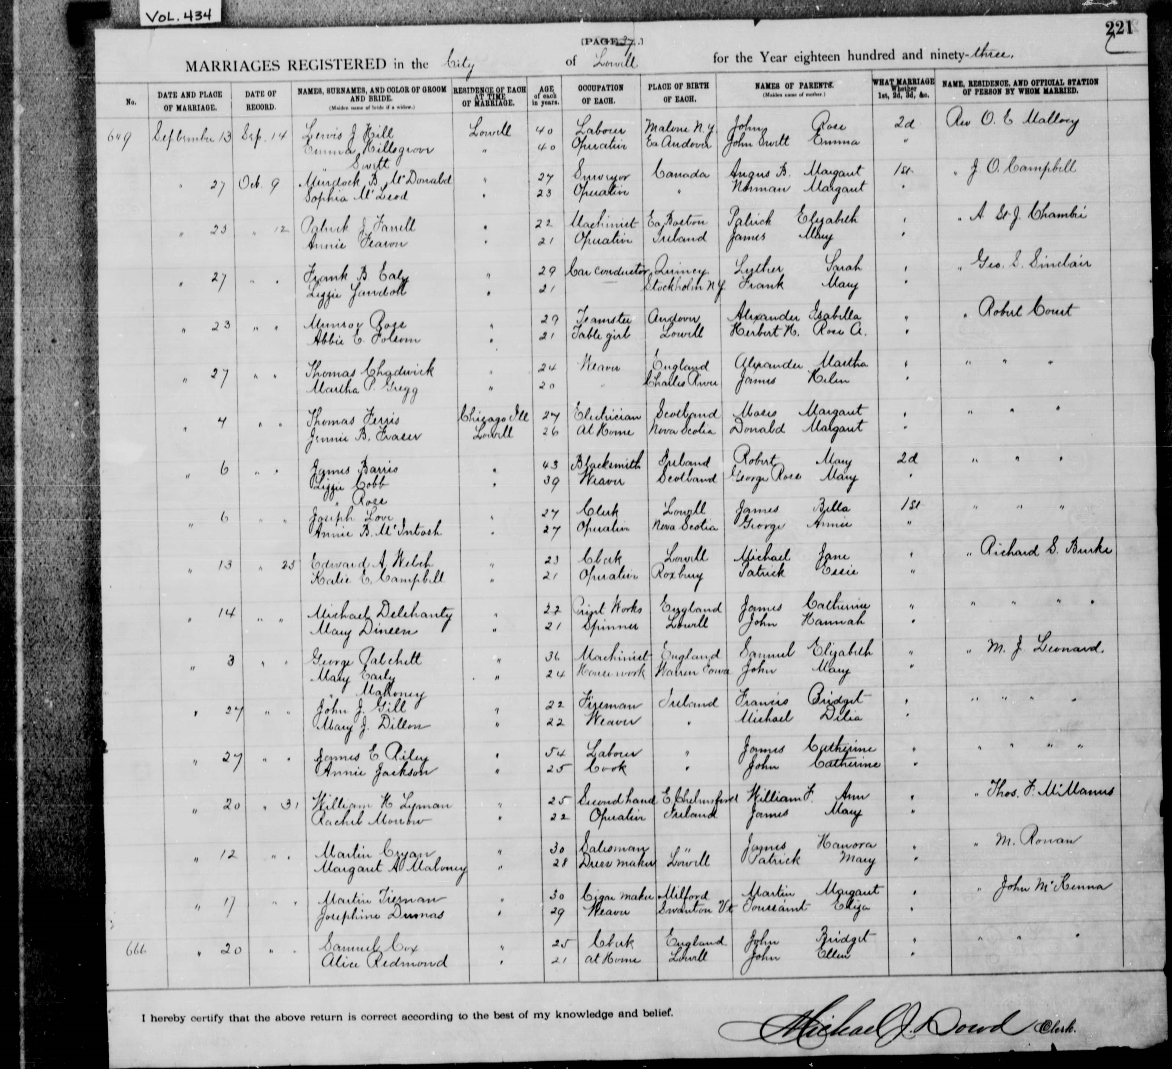 VOL. 434
221
[PAGE 27.]
MARRIAGES REGISTERED in the City of Lowell for the Year eighteen hundred and ninety-three.
No. DATE AND PLACE OF MARRIAGE. DATE OF RECORD. NAMES, SURNAMES, AND COLOR OF GROOM AND BRIDE. (Maiden name of bride if a widow.) RESIDENCE OF EACH AT TIME OF MARRIAGE. AGE of each in years. OCCUPATION OF EACH. PLACE OF BIRTH OF EACH. NAMES OF PARENTS. (Maiden name of mother.) WHAT MARRIAGE Whether 1st, 2d, 3d, &c. NAME, RESIDENCE, AND OFFICIAL STATION OF PERSON BY WHOM MARRIED.
649 September 13 Sep. 14 Lewis J Hill Lowell 40 Laborer Malone N.Y. John Rose 2d Rev O. E Mallory
Emma Hillsgrove " 40 Operative Ea Andover John Swett Emma "
" Swett
" 27 Oct. 9 Murdock B. McDonald " 27 Surveyor Canada Angus B. Margaret 1st " J O. Campbell
Sophia McLeod " 23 Operative " Norman Margaret "
" 25 " 12 Patrick J Farrell " 22 Machinist Ea Boston Patrick Elizabeth " " A St. J Chambré
Annie Fearon " 21 Operative Ireland James Mary "
" 27 " " Frank B Ealy " 29 Car conductor Quincy Luther Sarah " " Geo. S. Sinclair
Lizzie Jandolt " 21 Stockholm N.Y Frank Mary "
" 23 " " Munroe Rose " 29 Teamster Andover Alexander Isabella " " Robert Court
Abbie E. Folsom " 21 Table girl Lowell Herbert H. Rose A. "
" 27 " " Thomas Chadwick " 24 Weaver England Alexander Martha " " " "
Martha P. Gregg " 20 " Charles River James Helen "
" 4 " " Thomas Ferris Chicago Ill 27 Electrician Scotland Moses Margaret " " " "
Jennie B. Fraser Lowell 26 At Home Nova Scotia Donald Margaret "
" 6 " " James Barris " 43 Blacksmith Ireland Robert Mary 2d " " "
Lizzie Cobb " 39 Weaver Scotland George Ross Mary "
" Ross
" 6 " " Joseph Love " 27 Clerk Lowell James Bella 1st " " "
Annie B. McIntosh " 27 Operative Nova Scotia George Annie "
" 13 " 25 Edward A Welch " 23 Clerk Lowell Michael Jane " " Richard S. Burke
Katie E. Campbell " 21 Operative Roxbury Patrick Essie "
" 14 " " Michael Delehanty " 22 Print Works England James Catherine " " " " "
Mary Dineen " 21 Spinner Lowell John Hannah "
" 3 " " George Patchett " 36 Machinist England Samuel Elizabeth " " M. J. Leonard.
Mary Early " 24 Housework Warren Iowa John Mary "
" Mahoney
" 27 " " John J. Gill " 22 Fireman Ireland Francis Bridget " " " " "
Mary J. Dillon " 22 Weaver " Michael Delia "
" 27 " " James E. Riley " 54 Laborer " James Catherine " " " " "
Annie Jackson " 25 Cook " John Catherine "
" 20 " 31 William H Lyman " 25 Second hand E Chelmsford William F. Ann " " Thos. F. McManus
Rachel Morrow " 22 Operative Ireland James Mary "
" 12 " " Martin Cryan " 30 Salesman " James Hanora " " M. Ronan
Margaret A Mahoney " 28 Dress maker Lowell Patrick Mary "
" 17 " " Martin Tiernan " 30 Cigar maker Milford Martin Margaret " " John McKenna
Josephine Dumas " 29 Weaver Swanton Vt Toussaint Eliza "
666 " 20 " " Samuel Cox " 25 Clerk England John Bridget " " " "
Alice Redmond " 21 at Home Lowell John Ellen "
I hereby certify that the above return is correct according to the best of my knowledge and belief.
Michael J. Dowd Clerk.